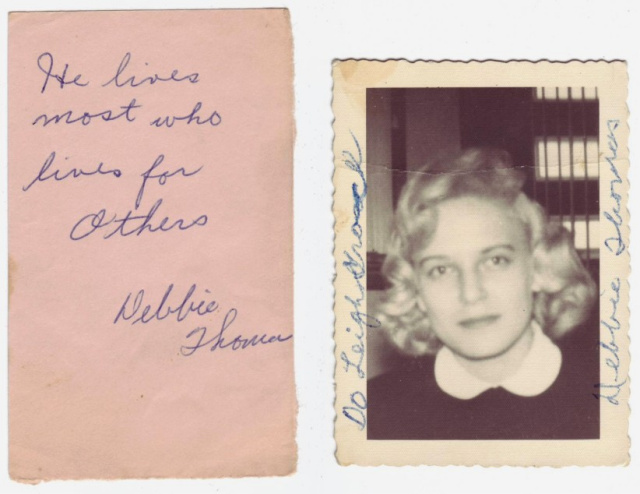 He lives
most who
lives for
Others
Debbie
Thomas
Do Leigh
Debbie Thomas